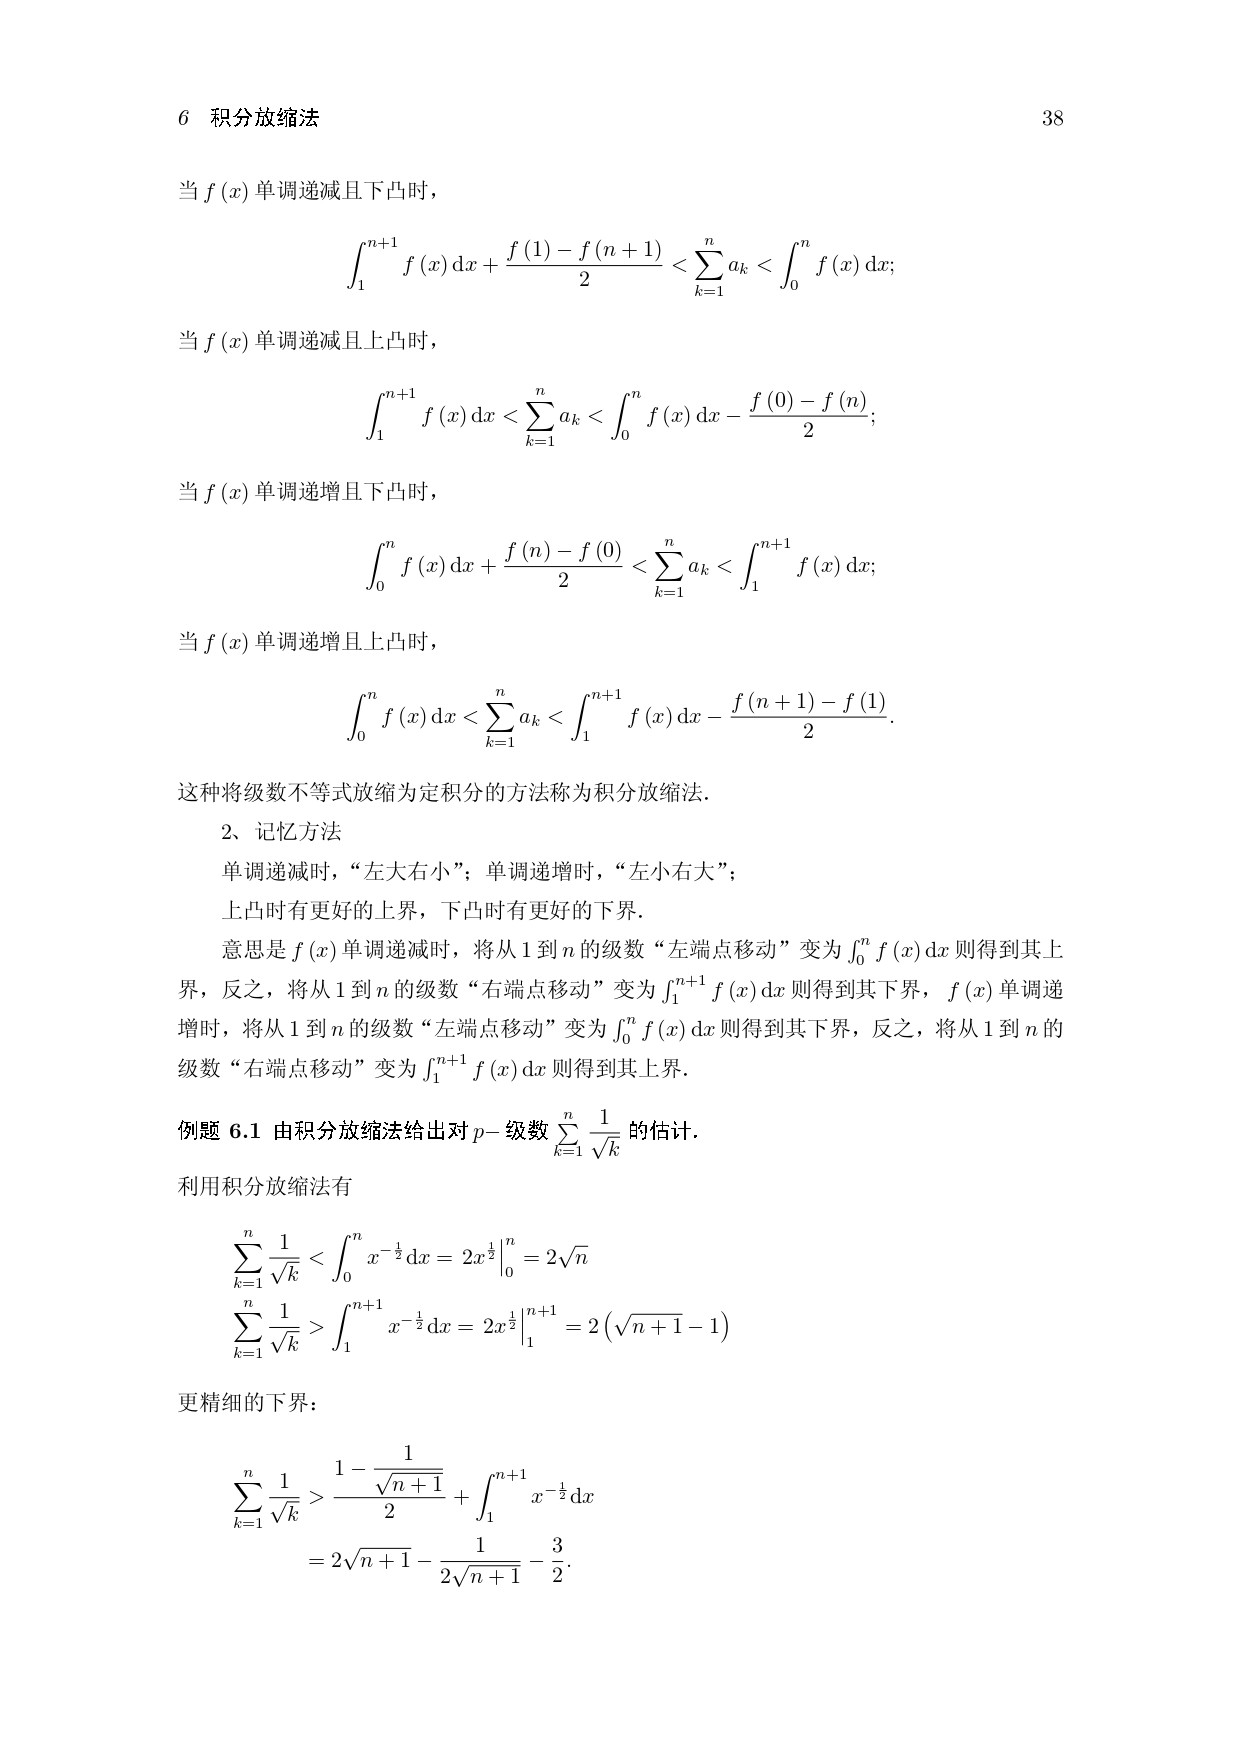 6 积分放缩法 38
当 f (x) 单调递减且下凸时，
$$\int_1^{n+1} f(x)\,\mathrm{d}x + \frac{f(1)-f(n+1)}{2} < \sum_{k=1}^{n} a_k < \int_0^n f(x)\,\mathrm{d}x;$$
当 f (x) 单调递减且上凸时，
$$\int_1^{n+1} f(x)\,\mathrm{d}x < \sum_{k=1}^{n} a_k < \int_0^n f(x)\,\mathrm{d}x - \frac{f(0)-f(n)}{2};$$
当 f (x) 单调递增且下凸时，
$$\int_0^n f(x)\,\mathrm{d}x + \frac{f(n)-f(0)}{2} < \sum_{k=1}^{n} a_k < \int_1^{n+1} f(x)\,\mathrm{d}x;$$
当 f (x) 单调递增且上凸时，
$$\int_0^n f(x)\,\mathrm{d}x < \sum_{k=1}^{n} a_k < \int_1^{n+1} f(x)\,\mathrm{d}x - \frac{f(n+1)-f(1)}{2}.$$
这种将级数不等式放缩为定积分的方法称为积分放缩法．
2、记忆方法
单调递减时，“左大右小”；单调递增时，“左小右大”；
上凸时有更好的上界，下凸时有更好的下界．
意思是 f (x) 单调递减时，将从 1 到 n 的级数“左端点移动”变为 $\int_0^n f(x)\,\mathrm{d}x$ 则得到其上
界，反之，将从 1 到 n 的级数“右端点移动”变为 $\int_1^{n+1} f(x)\,\mathrm{d}x$ 则得到其下界， f (x) 单调递
增时，将从 1 到 n 的级数“左端点移动”变为 $\int_0^n f(x)\,\mathrm{d}x$ 则得到其下界，反之，将从 1 到 n 的
级数“右端点移动”变为 $\int_1^{n+1} f(x)\,\mathrm{d}x$ 则得到其上界．
例题 6.1 由积分放缩法给出对 p− 级数 $\sum_{k=1}^{n} \frac{1}{\sqrt{k}}$ 的估计．
利用积分放缩法有
$$\sum_{k=1}^{n} \frac{1}{\sqrt{k}} < \int_0^n x^{-\frac{1}{2}}\mathrm{d}x = \left. 2x^{\frac{1}{2}} \right|_0^n = 2\sqrt{n}$$
$$\sum_{k=1}^{n} \frac{1}{\sqrt{k}} > \int_1^{n+1} x^{-\frac{1}{2}}\mathrm{d}x = \left. 2x^{\frac{1}{2}} \right|_1^{n+1} = 2\left(\sqrt{n+1}-1\right)$$
更精细的下界：
$$\sum_{k=1}^{n} \frac{1}{\sqrt{k}} > \frac{1-\dfrac{1}{\sqrt{n+1}}}{2} + \int_1^{n+1} x^{-\frac{1}{2}}\mathrm{d}x$$
$$= 2\sqrt{n+1} - \frac{1}{2\sqrt{n+1}} - \frac{3}{2}.$$